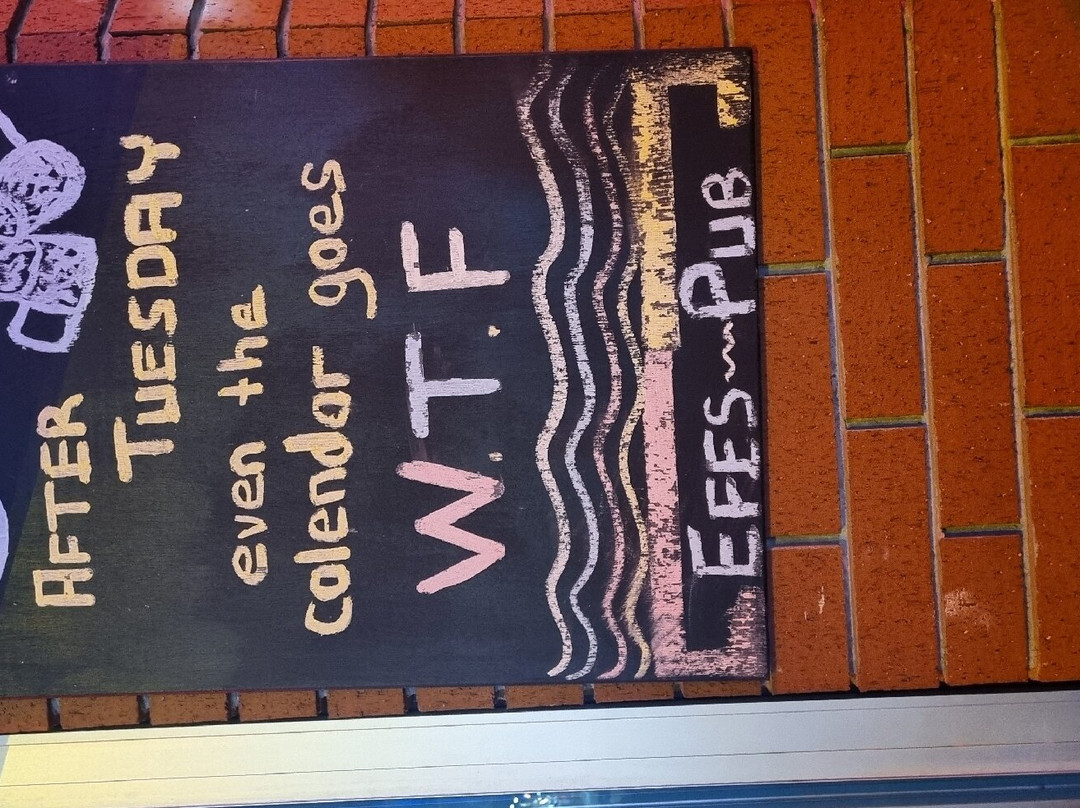 AFTER
TUESDAY
even the
calendar goes
W.T.F
EFES~PUB